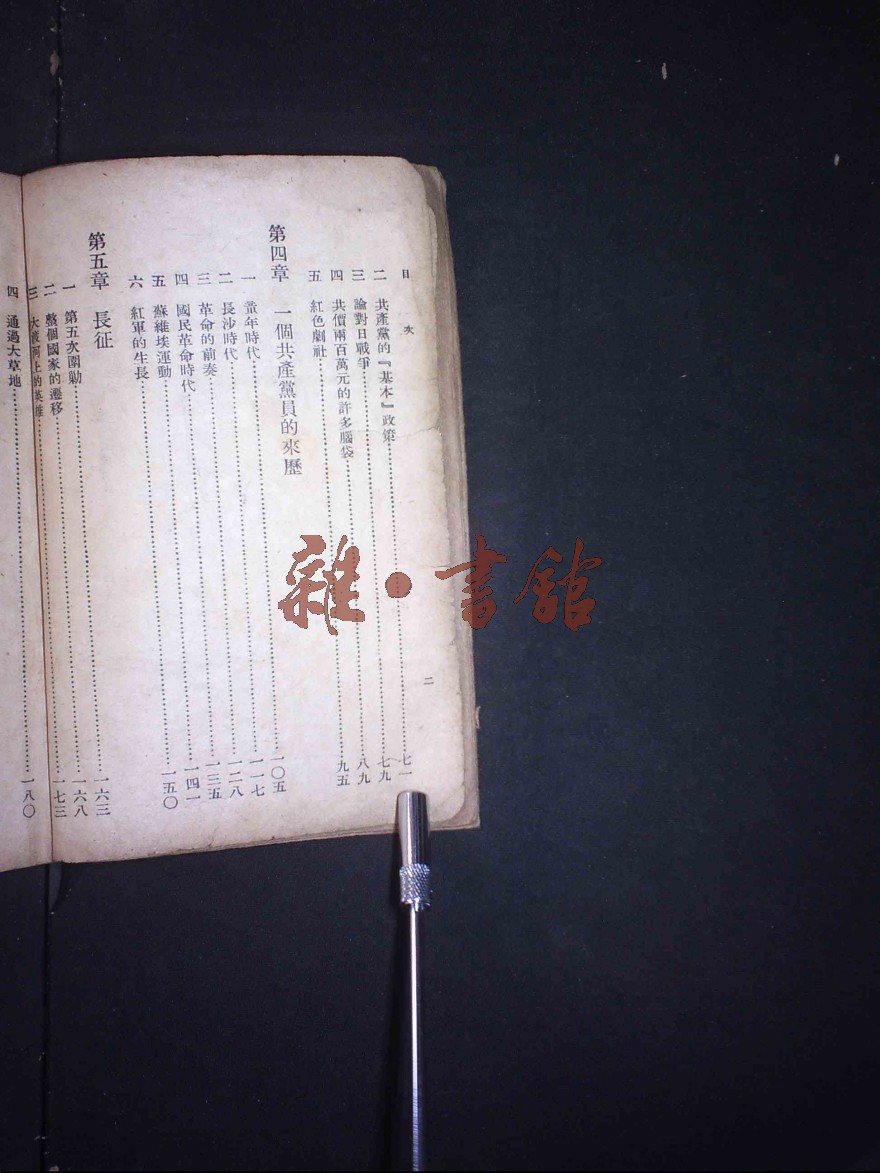 目次
二
二 共產黨的『基本』政策……七一
三 論對日戰爭……七九
四 共價兩百萬元的許多腦袋……八九
五 紅色劇社……九五
第四章 一個共產黨員的來歷
一 童年時代……一〇五
二 長沙時代……一一七
三 革命的前奏……一二八
四 國民革命時代……一三五
五 蘇維埃運動……一四一
六 紅軍的生長……一五〇
第五章 長征
一 第五次圍勦……一六三
二 整個國家的遷移……一六八
三 大渡河上的英雄……一七三
四 通過大草地……一八〇
雜·書館